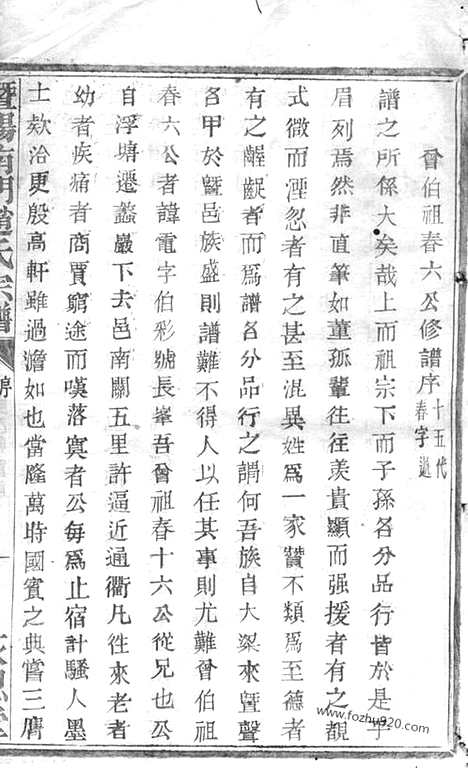 曾伯祖春六公修譜序 十五代春字遜
譜之所係大矣哉上而祖宗下而子孫各分品行皆於是乎
眉列焉然非直筆如董孤輩往往羨貴顯而强援者有之覩
式微而湮忽者有之甚至混異姓爲一家贊不類爲至德者
有之齷齪者而爲譜各分品行之謂何吾族自大梁來曁聲
名甲於曁邑族盛則譜難不得人以任其事則尤難曾伯祖
春六公者諱電字伯彩號長峯吾曾祖春十六公從兄也公
自浮塘遷蠡巖下去邑南關五里許逼近通衢凡往來老者
幼者疾痛者商賈窮途而嘆落寞者公每爲止宿計騷人墨
士欸洽更殷高軒雖過澹如也當隆萬時國賓之典嘗三膺
曁陽南門趙氏宗譜 序
www.fozhu920.com